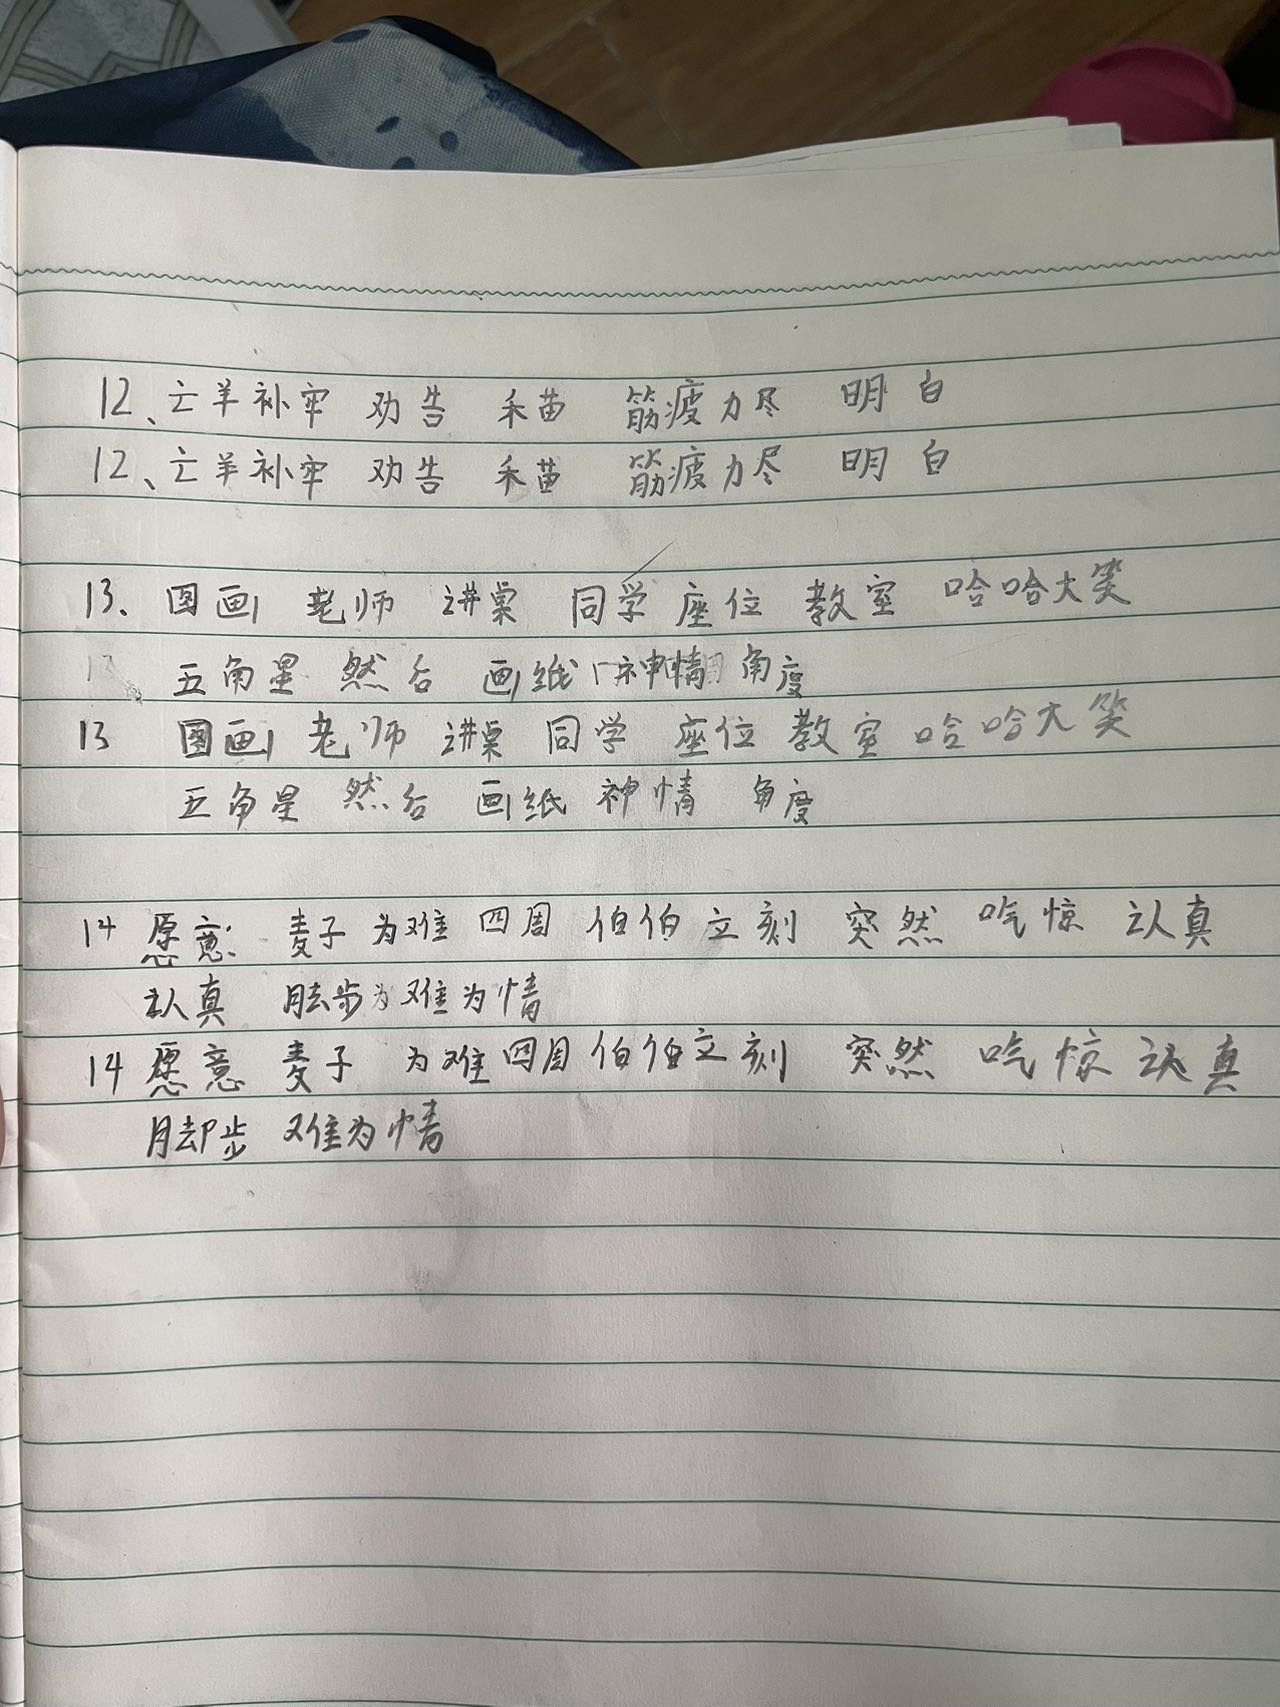 12、亡羊补牢 劝告 禾苗 筋疲力尽 明白
12、亡羊补牢 劝告 禾苗 筋疲力尽 明白
13、图画 老师 讲桌 同学 座位 教室 哈哈大笑
五角星 然后 画纸 神情 角度
13 图画 老师 讲桌 同学 座位 教室 哈哈大笑
五角星 然后 画纸 神情 角度
14 愿意 麦子 为难 四周 伯伯 立刻 突然 吃惊 认真
认真 脚步 为难为情
14 愿意 麦子 为难 四周 伯伯 立刻 突然 吃惊 认真
脚步 难为情